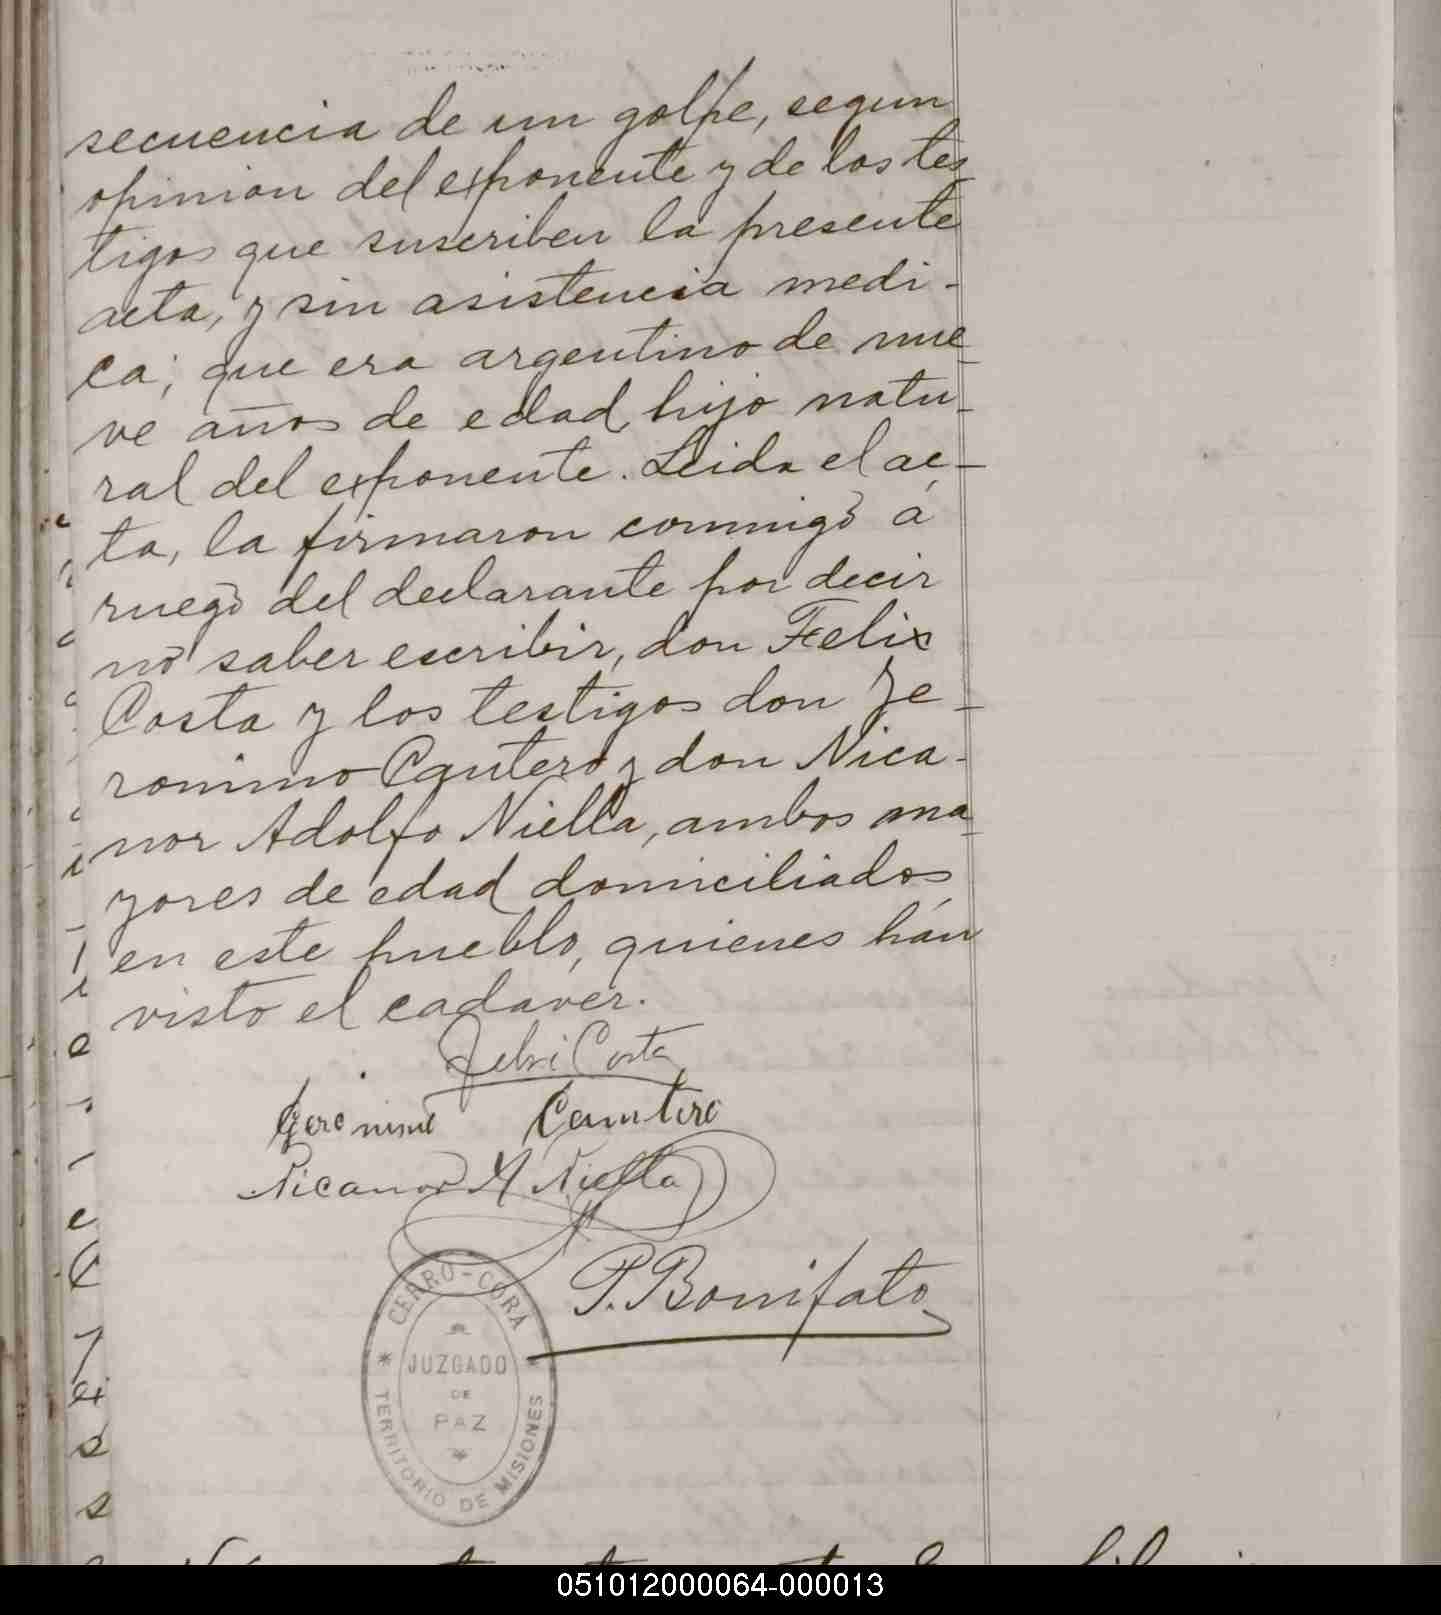 secuencia de un golpe, segun
opinion del exponente y de los tes
tigos que suscriben la presente
acta, y sin asistencia medi-
ca; que era argentino de nue-
ve años de edad, hijo natu-
ral del exponente. Leida el ac-
ta, la firmaron conmigo á
ruego del declarante por decir
no saber escribir, don Felix
Costa y los testigos don Je-
ronimo Cantero y don Nica-
nor Adolfo Niella, ambos ma-
yores de edad domiciliados
en este pueblo, quienes hán
visto el cadaver.
Felix Costa
Geronimo Cantero
Nicanor A Niella
P. Bonifato
CERRO-CORA
JUZGADO
DE
PAZ
TERRITORIO DE MISIONES
051012000064-000013